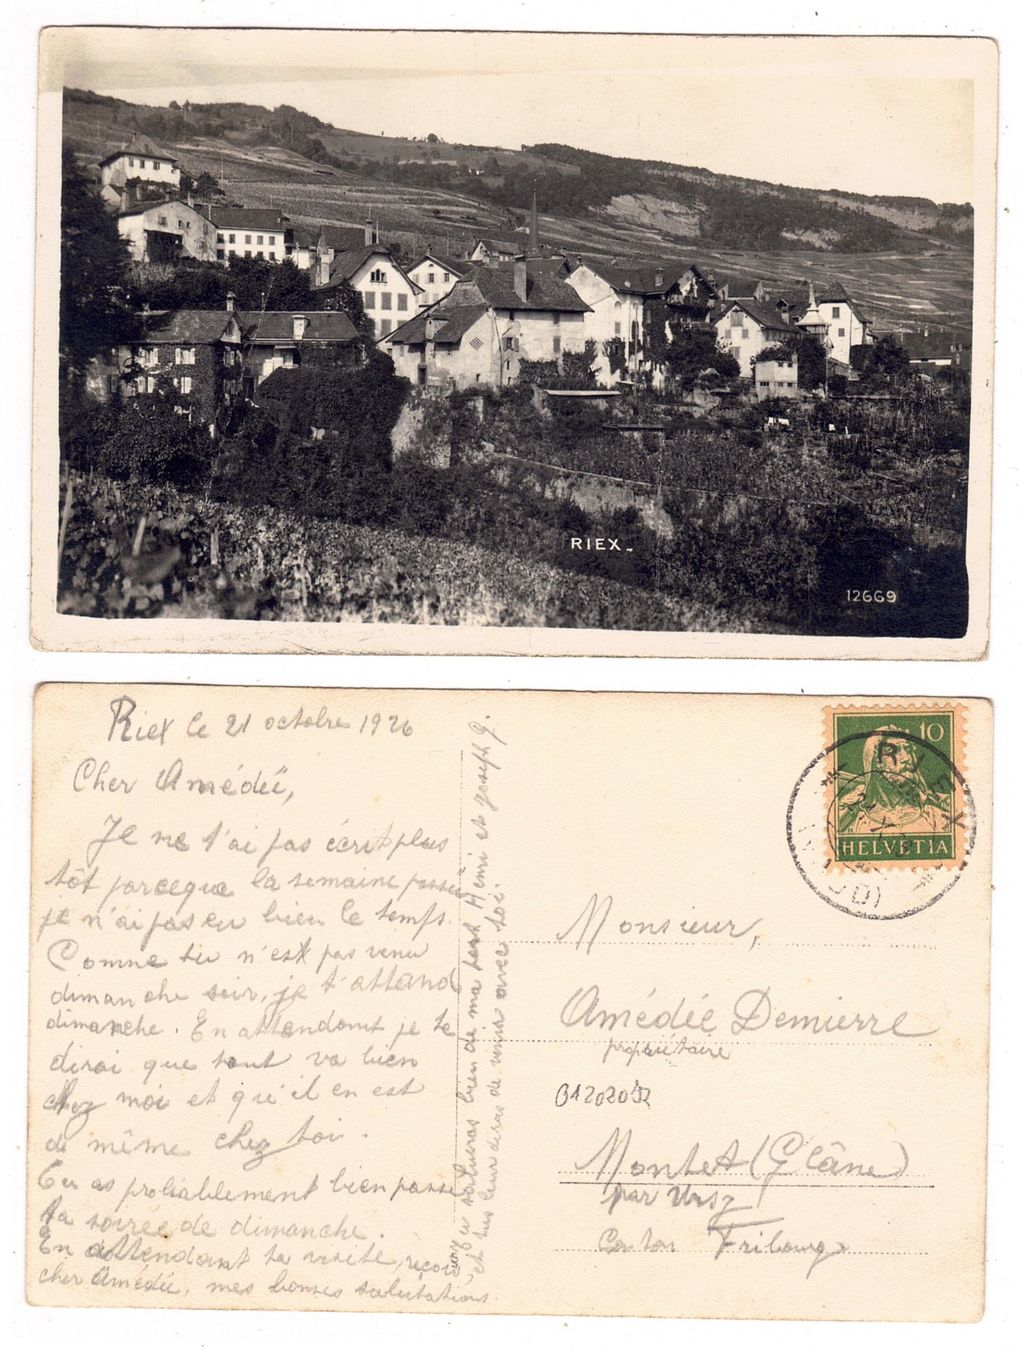 RIEX_
12669
Riex le 21 octobre 1926
Cher Amédée,
Je ne t'ai pas écrit plus
tôt parceque la semaine passée
je n'ai pas eu bien le temps.
Comme tu n'est pas venu
dimanche soir, je t'attend
dimanche. En attendant je te
dirai que tout va bien
chez moi et qu'il en est
de même chez toi.
Tu as probablement bien passé
ta soirée de dimanche.
En attendant ta visite, reçois,
cher Amédée, mes bonnes salutations.
Tu salueras bien de ma part Henri et Joseph G.
et tu leur diras de venir avec toi.
10
HELVETIA
RIEX
Monsieur,
Amédée Demierre
propriétaire
01202012
Montet (Glâne)
par Ursy
Canton Fribourg